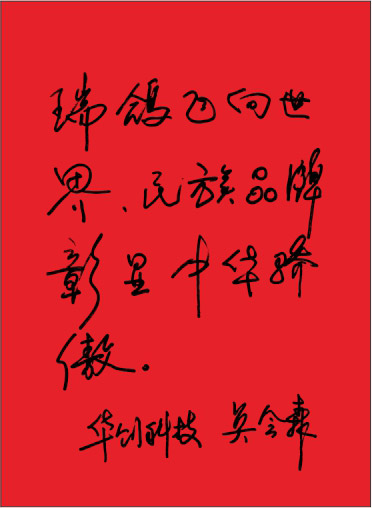 瑞鸽飞向世
界、民族品牌
彰显中华骄
傲。
华创科技 吴会森